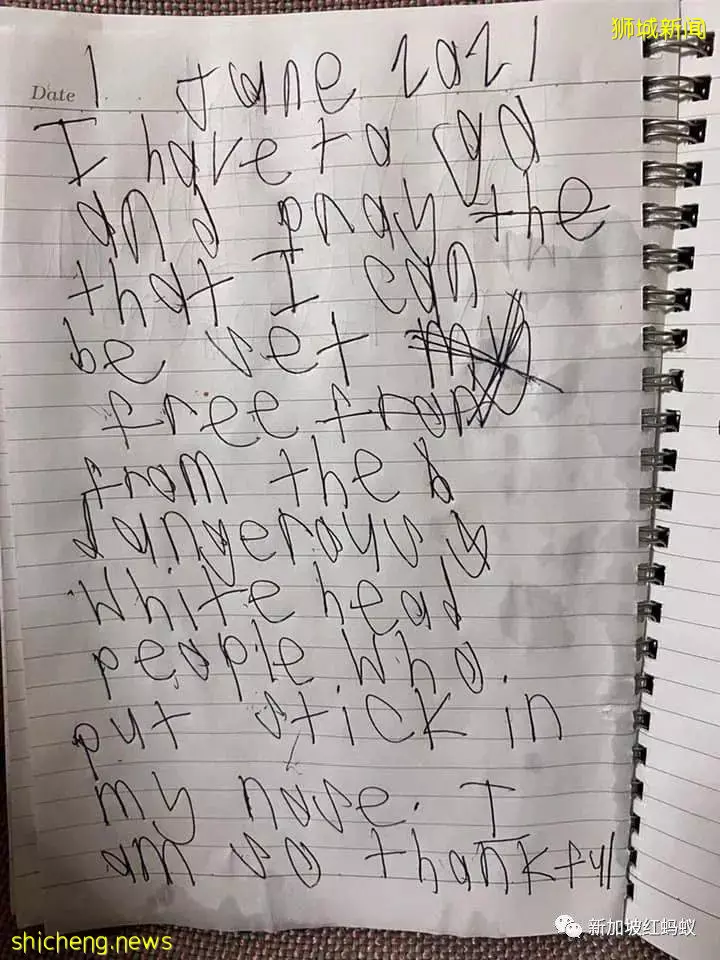 狮城新闻
Date 1 June 2021
I have to a god
and pray the
that I can
be set my
free from
from the b
dangerouys y
white head
people who.
put stick in
my nose. I
am so thankful
新加坡红蚂蚁
shicheng.news